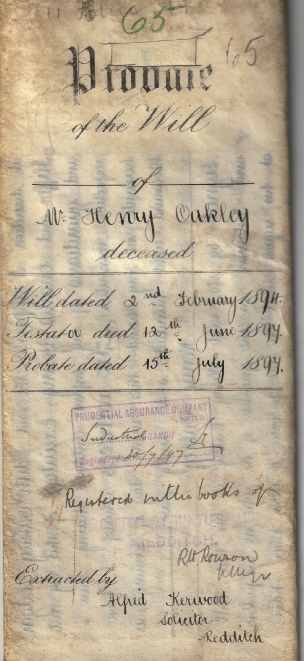 65
65
Probate
of the Will
of
Mr Henry Oakley
deceased
Will dated 2nd February 1894.
Testator died 12th June 1897.
Probate dated 15th July 1897.
PRUDENTIAL ASSURANCE COMPANY
LIMITED
Industrial BRANCH
Registered 20/7/97
Registered in the books of
REDDITCH.
Extracted by
Alfred Kerwood
Solicitor
Redditch